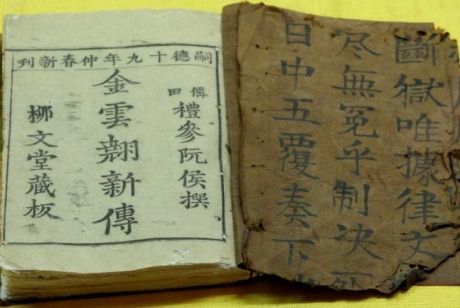 嗣德十九年仲春新刊
僊田禮參阮侯撰
金雲翹新傳
栁文堂藏板
斷獄唯據律文
尽無冤乎制决死
日中五覆奏下